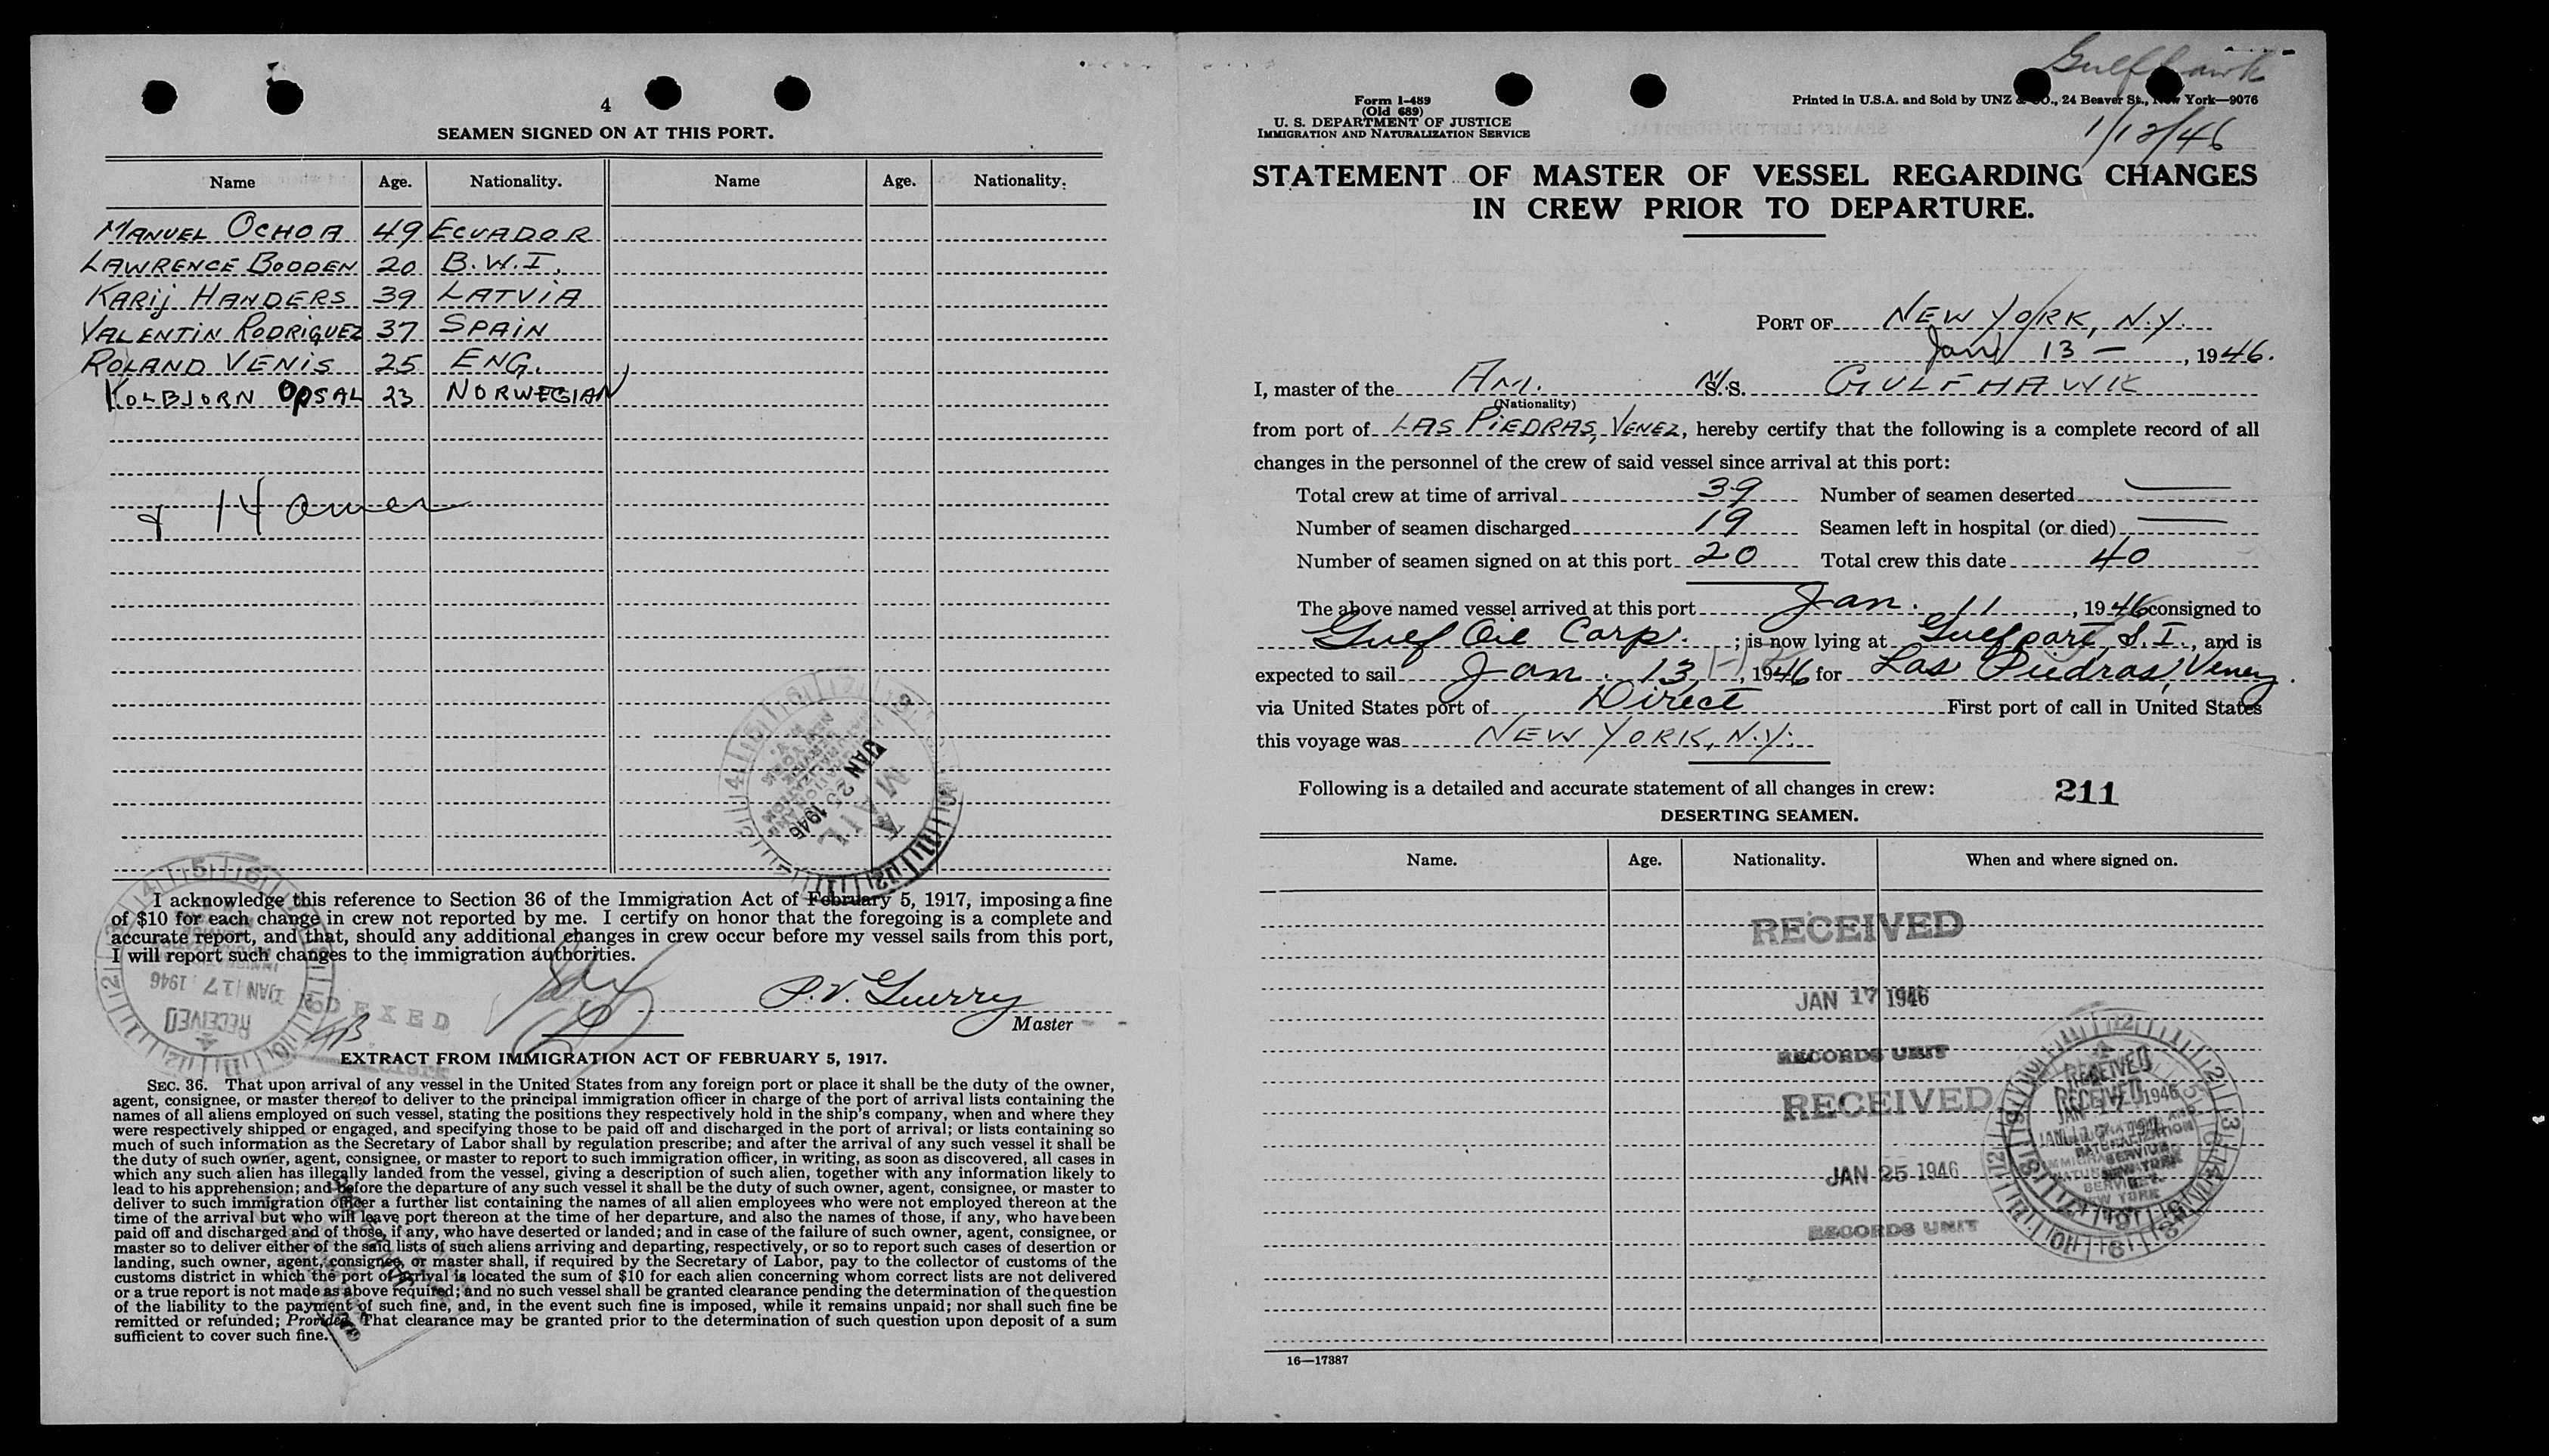 4
SEAMEN SIGNED ON AT THIS PORT.
Name Age. Nationality. Name Age. Nationality.
MANUEL OCHOA 49 ECUADOR
LAWRENCE BODDEN 20 B.W.I.
KARIJ HANDERS 39 LATVIA
VALENTIN RODRIGUEZ 37 SPAIN
ROLAND VENIS 25 ENG.
KOLBJORN OPSAL 23 NORWEGIAN
14 Amer
MAIL
JAN 25 1946
I acknowledge this reference to Section 36 of the Immigration Act of February 5, 1917, imposing a fine
of $10 for each change in crew not reported by me. I certify on honor that the foregoing is a complete and
accurate report, and that, should any additional changes in crew occur before my vessel sails from this port,
I will report such changes to the immigration authorities.
JAN 17 1946
RECEIVED
INDEXED
P.V. Guerry
Master
Clerk
EXTRACT FROM IMMIGRATION ACT OF FEBRUARY 5, 1917.
SEC. 36. That upon arrival of any vessel in the United States from any foreign port or place it shall be the duty of the owner,
agent, consignee, or master thereof to deliver to the principal immigration officer in charge of the port of arrival lists containing the
names of all aliens employed on such vessel, stating the positions they respectively hold in the ship's company, when and where they
were respectively shipped or engaged, and specifying those to be paid off and discharged in the port of arrival; or lists containing so
much of such information as the Secretary of Labor shall by regulation prescribe; and after the arrival of any such vessel it shall be
the duty of such owner, agent, consignee, or master to report to such immigration officer, in writing, as soon as discovered, all cases in
which any such alien has illegally landed from the vessel, giving a description of such alien, together with any information likely to
lead to his apprehension; and before the departure of any such vessel it shall be the duty of such owner, agent, consignee, or master to
deliver to such immigration officer a further list containing the names of all alien employees who were not employed thereon at the
time of the arrival but who will leave port thereon at the time of her departure, and also the names of those, if any, who have been
paid off and discharged and of those, if any, who have deserted or landed; and in case of the failure of such owner, agent, consignee, or
master so to deliver either of the said lists of such aliens arriving and departing, respectively, or so to report such cases of desertion or
landing, such owner, agent, consignee, or master shall, if required by the Secretary of Labor, pay to the collector of customs of the
customs district in which the port of arrival is located the sum of $10 for each alien concerning whom correct lists are not delivered
or a true report is not made as above required; and no such vessel shall be granted clearance pending the determination of the question
of the liability to the payment of such fine, and, in the event such fine is imposed, while it remains unpaid; nor shall such fine be
remitted or refunded; Provided, That clearance may be granted prior to the determination of such question upon deposit of a sum
sufficient to cover such fine.
Gulfhawk
1/12/46
Form I-489
(Old 689)
U. S. DEPARTMENT OF JUSTICE
IMMIGRATION AND NATURALIZATION SERVICE
Printed in U.S.A. and Sold by UNZ & CO., 24 Beaver St., New York—9076
STATEMENT OF MASTER OF VESSEL REGARDING CHANGES
IN CREW PRIOR TO DEPARTURE.
PORT OF NEW YORK, N.Y.
Jan 13 —, 1946.
I, master of the Am. M.S. GULFHAWK
(Nationality)
from port of LAS PIEDRAS, VENEZ, hereby certify that the following is a complete record of all
changes in the personnel of the crew of said vessel since arrival at this port:
Total crew at time of arrival 39 Number of seamen deserted —
Number of seamen discharged 19 Seamen left in hospital (or died) —
Number of seamen signed on at this port 20 Total crew this date 40
The above named vessel arrived at this port Jan. 11, 1946 consigned to
Gulf Oil Corp.; is now lying at Gulfport, S.I., and is
expected to sail Jan. 13, 1946 for Las Piedras, Venez.
via United States port of Direct First port of call in United States
this voyage was NEW YORK, N.Y.
Following is a detailed and accurate statement of all changes in crew: 211
DESERTING SEAMEN.
Name. Age. Nationality. When and where signed on.
RECEIVED
JAN 17 1946
RECORDS UNIT
RECEIVED
JAN 25 1946
RECORDS UNIT
RECEIVED
RECEIVED
16—17387